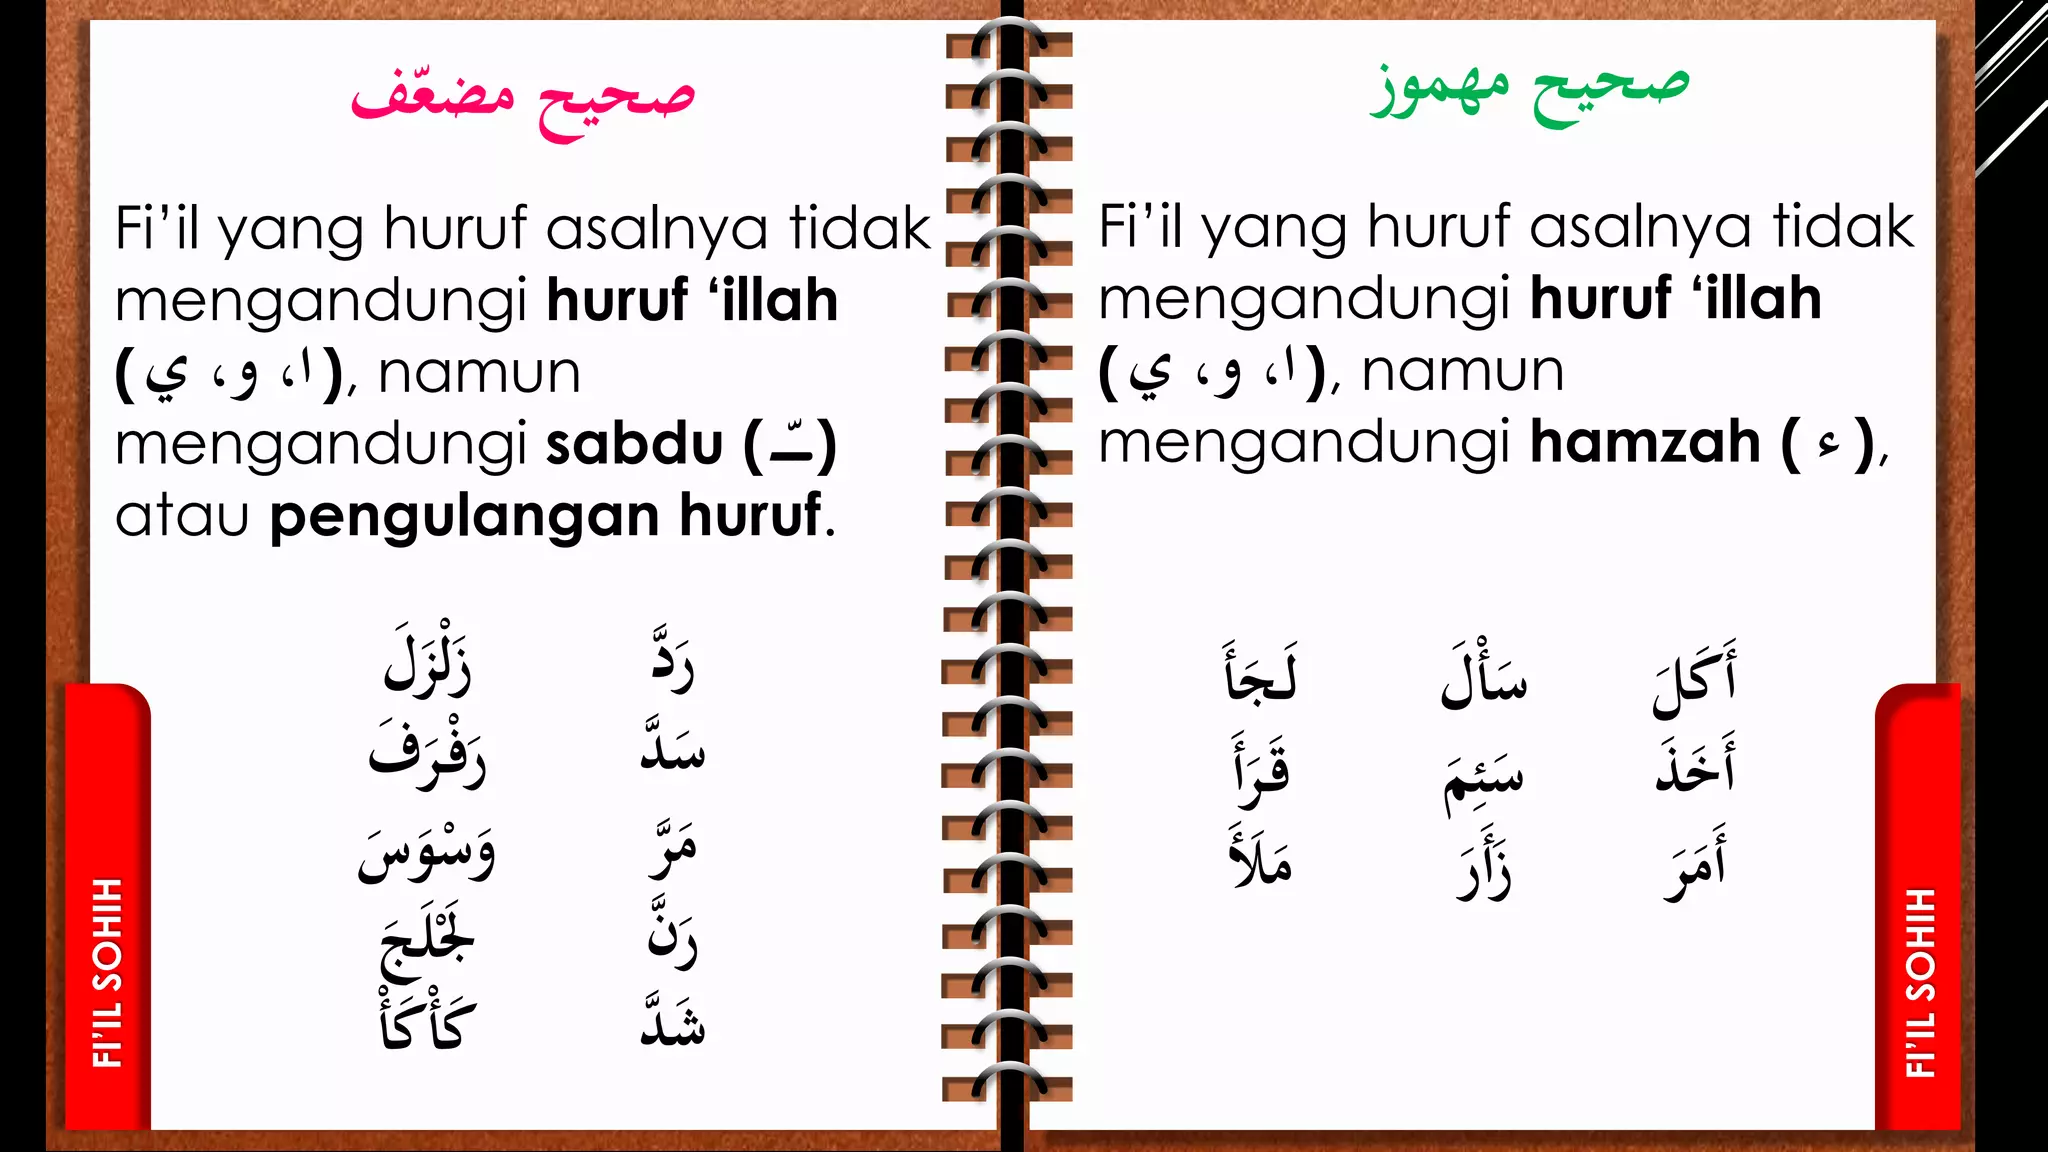 صحيح مضعّف
Fi’il yang huruf asalnya tidak
mengandungi huruf ‘illah
(ا، و، ي), namun
mengandungi sabdu (ـّـ)
atau pengulangan huruf.
رَدَّ زَلْزَلَ
سَدَّ رَفْرَفَ
مَرَّ وَسْوَسَ
رَنَّ لَجْلَجَ
شَدَّ كَأْكَأْ
FI’IL SOHIH
صحيح مهموز
Fi’il yang huruf asalnya tidak
mengandungi huruf ‘illah
(ا، و، ي), namun
mengandungi hamzah ( ء ),
أَكَلَ سَأْلَ لَجَأَ
أَخَذَ سَئِمَ قَرَأَ
أَمَرَ زَأَرَ مَلَأَ
FI’IL SOHIH